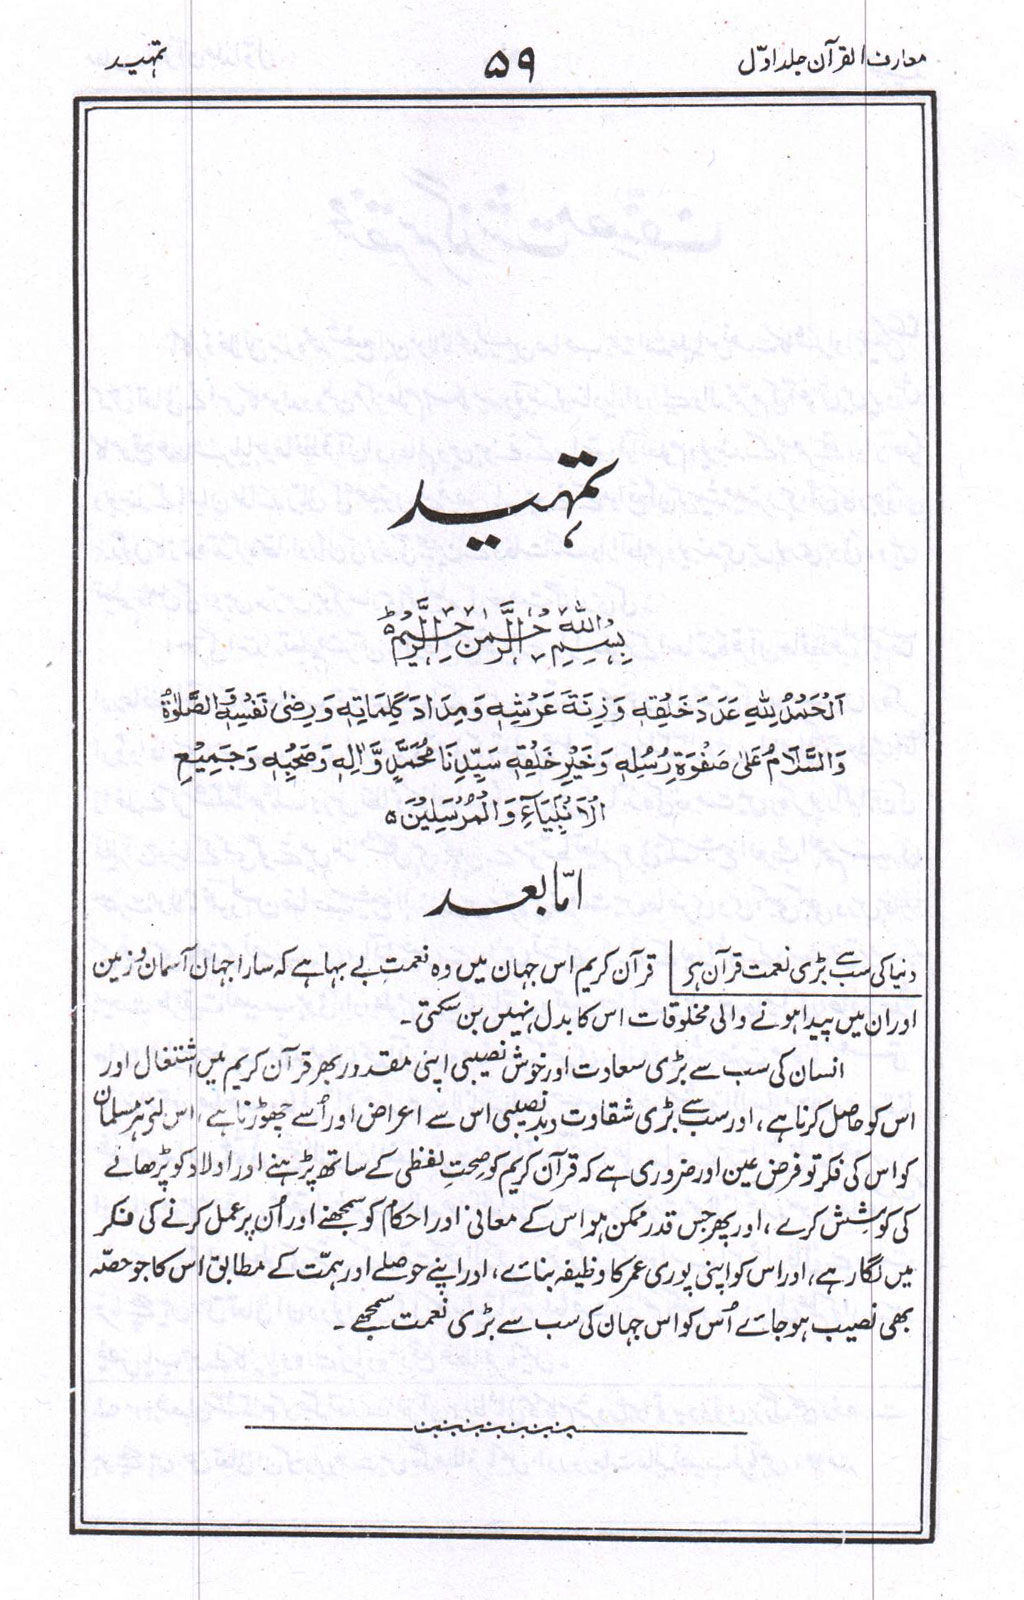 معارف القرآن جلد اوّل
۵۹
تمہید
تمہید
بِسْمِ اللهِ الرَّحْمٰنِ الرَّحِيْمِ ہ
اَلْحَمْدُ لِلّٰهِ عَدَدَ خَلْقِهٖ وَزِنَةَ عَرْشِهٖ وَمِدَادَ كَلِمَاتِهٖ وَرِضٰى نَفْسِهٖ وَالصَّلٰوةُ
وَالسَّلَامُ عَلٰى صَفْوَةِ رُسُلِهٖ وَخَيْرِ خَلْقِهٖ سَيِّدِنَا مُحَمَّدٍ وَّاٰلِهٖ وَصَحْبِهٖ وَجَمِيْعِ
الْاَنْبِيَآءِ وَالْمُرْسَلِيْنَ ہ
امّا بعد
دنیا کی سب سے بڑی نعمت قرآن ہر قرآن کریم اس جہان میں وہ نعمت بے بہا ہے کہ سارا جہان آسمان و زمین
اور ان میں پیدا ہونے والی مخلوقات اس کا بدل نہیں بن سکتی۔
انسان کی سب سے بڑی سعادت اور خوش نصیبی اپنی مقدور بھر قرآن کریم میں اشتغال اور
اس کو حاصل کرنا ہے، اور سب سے بڑی شقاوت و بدنصیبی اس سے اعراض اور اُسے چھوڑنا ہے، اس لئے ہر مسلمان
کو اس کی فکر تو فرض عین اور ضروری ہے کہ قرآن کریم کو صحتِ لفظی کے ساتھ پڑہنے اور اولاد کو پڑھانے
کی کوشِش کرے، اور پھر جس قدر ممکن ہو اس کے معانی اور احکام کو سمجھنے اور اُن پر عمل کرنے کی فکر
میں لگا رہے، اور اس کو اپنی پوری عمر کا وظیفہ بنائے، اور اپنے حوصلے اور ہمّت کے مطابق اس کا جو حصّہ
بھی نصیب ہو جائے اُس کو اس جہان کی سب سے بڑی نعمت سمجھے۔